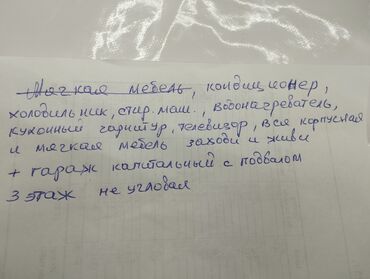 Мягкая мебель, кондиционер,
холодильник, стир. маш., водонагреватель,
кухонный гарнитур, телевизор, вся корпусная
и мягкая мебель заходи и живи
+ гараж капитальный с подвалом
3 этаж не угловая